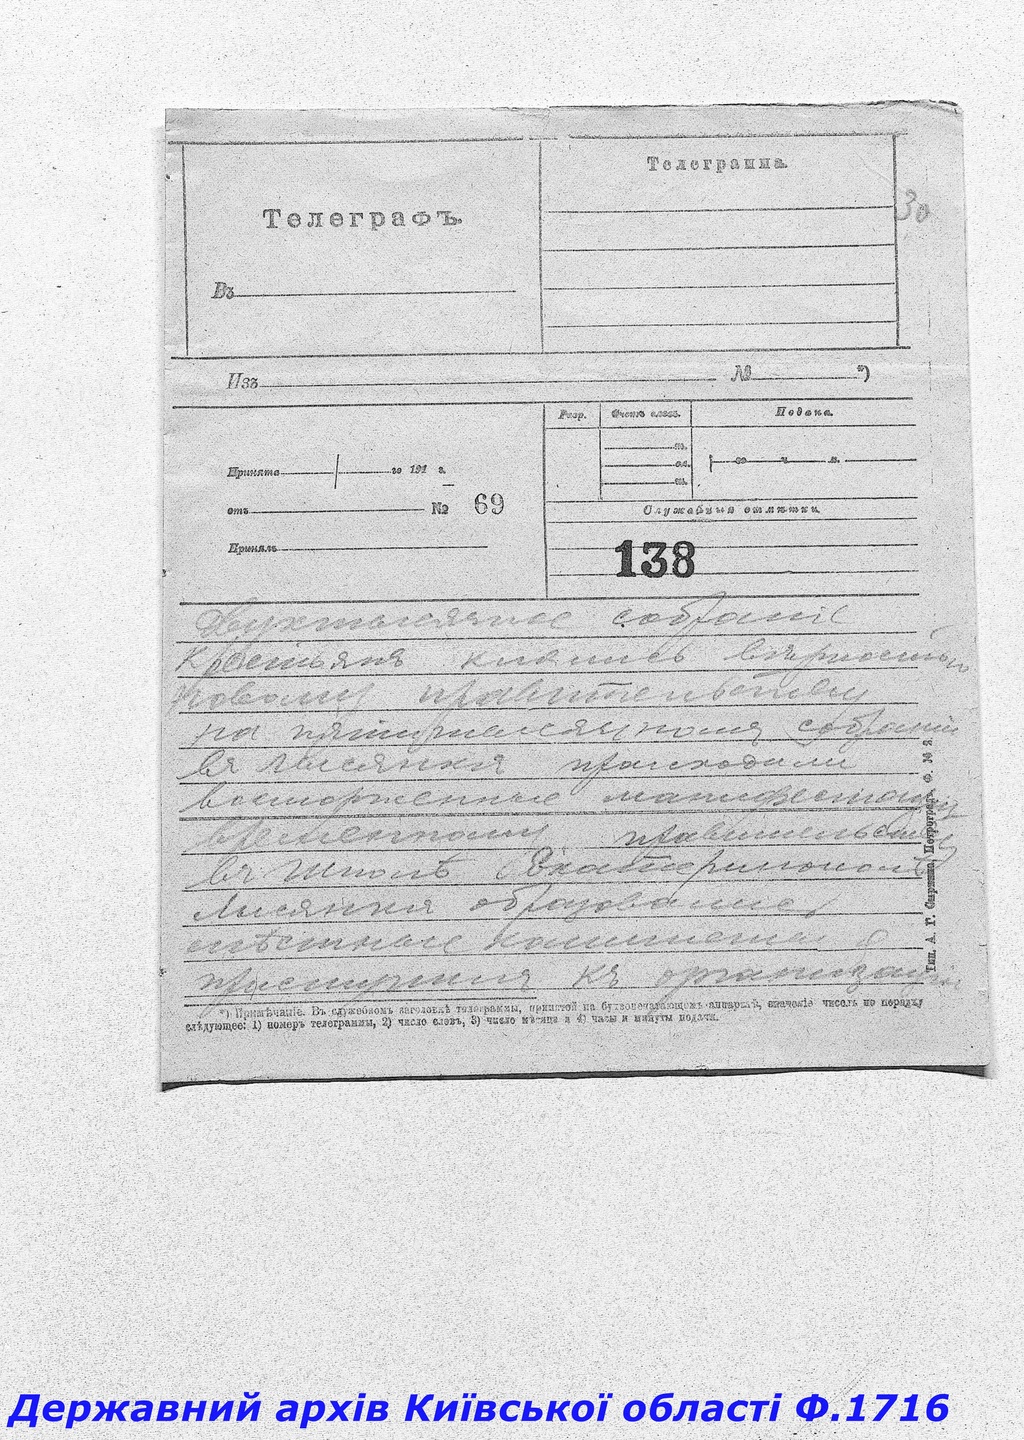 Телеграмма.
Телеграфъ.
30
Въ
Изъ № *)
Разр. Счетъ словъ. Подана.
Принята го 191 г.
отъ № 69
Служебныя отмѣтки.
Принялъ
138
Двухтысячное собраніе
крестьянъ клялись вѣрностью
новому правительству
на пятитысячномъ собраніи
въ Лисянкѣ происходили
восторженные манифестаціи
временному правительству
въ Шполѣ Екатеринополѣ
Лисянкѣ образовались
мѣстные комитеты
приступили къ организаціи
*) Примѣчаніе. Въ служебномъ заголовкѣ телеграммы, принятой на буквопечатающемъ аппаратѣ, значеніе чиселъ по порядку
слѣдующее: 1) номеръ телеграммы, 2) число словъ, 3) число мѣсяца и 4) часы и минуты подачи.
Тип. А. Г. Петроградъ. Ф. № 8
Державний архів Київської області Ф.1716